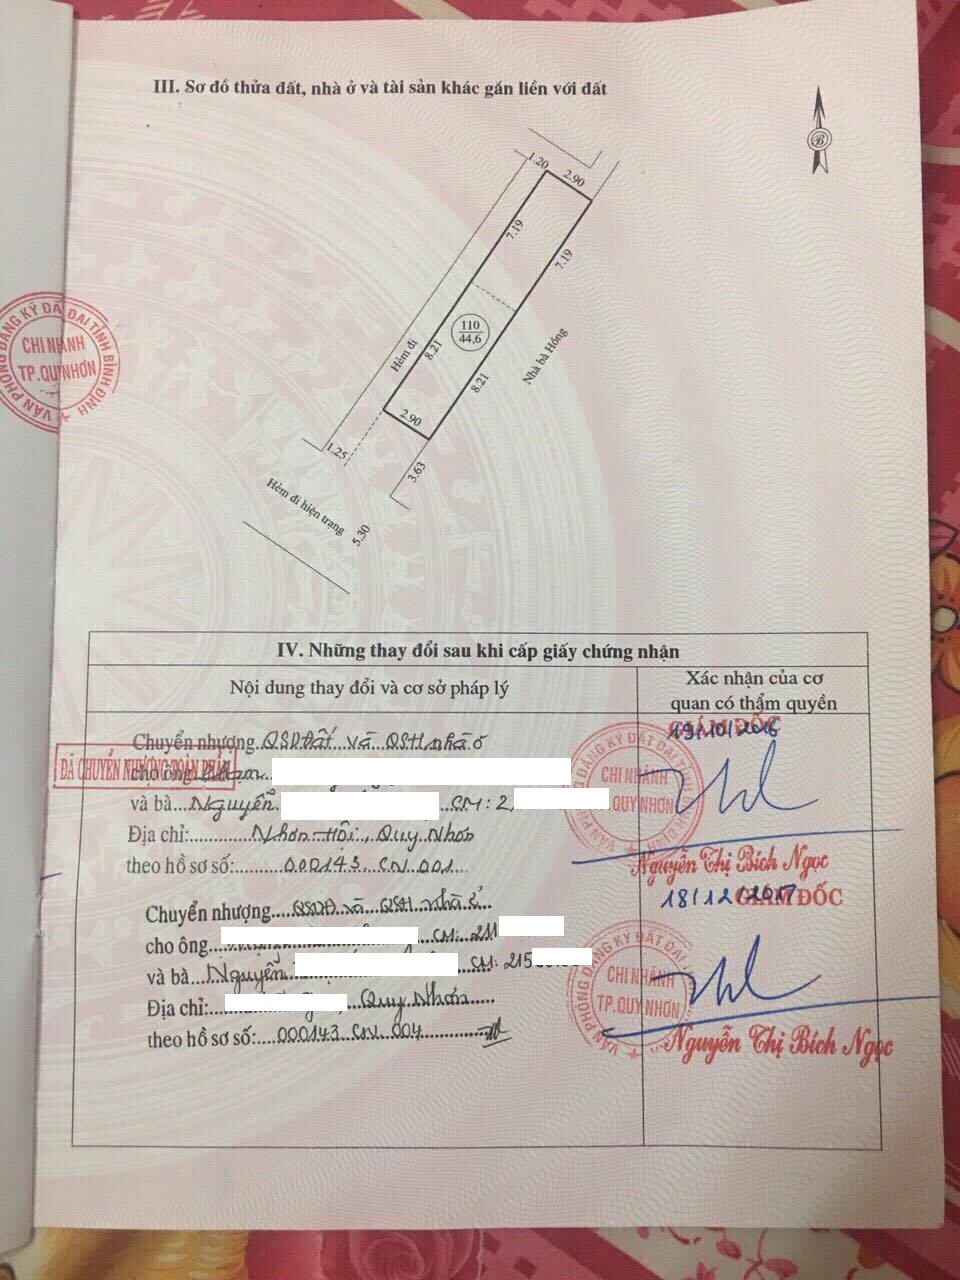 III. Sơ đồ thửa đất, nhà ở và tài sản khác gắn liền với đất
B
1.20
2.90
7.19
7.19
110
44,6
Hẻm đi
8.21
8.21
Nhà bà Hồng
2.90
1.25
3.63
Hẻm đi hiện trạng
5.30
VĂN PHÒNG ĐĂNG KÝ ĐẤT ĐAI TỈNH BÌNH ĐỊNH
CHI NHÁNH
TP.QUY NHƠN
IV. Những thay đổi sau khi cấp giấy chứng nhận
Nội dung thay đổi và cơ sở pháp lý
Xác nhận của cơ
quan có thẩm quyền
Chuyển nhượng QSDĐất và QSH nhà ở
ĐÃ CHUYỂN NHƯỢNG TOÀN
cho ông
và bà Nguyễn CM: 2
Địa chỉ: Nhơn Hội, Quy Nhơn
theo hồ sơ số: 000143.CN.001
19/10/2016
GIÁM ĐỐC
VĂN PHÒNG ĐĂNG KÝ ĐẤT ĐAI TỈNH
CHI NHÁNH
QUY NHƠN
Nguyễn Thị Bích Ngọc
Chuyển nhượng QSDĐ và QSH nhà ở
cho ông CM: 211
và bà Nguyễn CM: 215
Địa chỉ: Quy Nhơn
theo hồ sơ số: 000143.CN.004
18/12/2017
GIÁM ĐỐC
VĂN PHÒNG ĐĂNG KÝ ĐẤT ĐAI
CHI NHÁNH
TP.QUY NHƠN
Nguyễn Thị Bích Ngọc